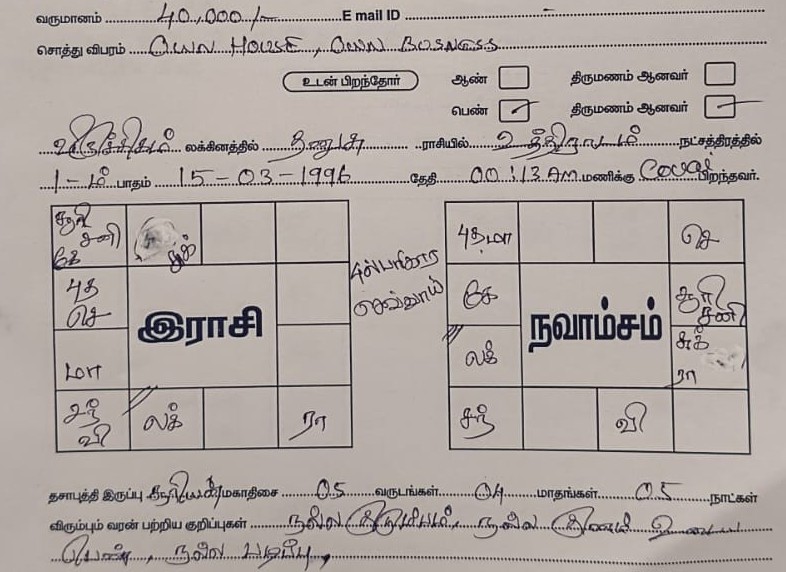 வருமானம் 40,000/- E mail ID -
சொத்து விபரம் OWN HOUSE, OWN BUSNESS
உடன் பிறந்தோர் ஆண் திருமணம் ஆனவர்
பெண் திருமணம் ஆனவர்
விருச்சிகம் லக்கினத்தில் தனுசு ராசியில் உத்திராடம் நட்சத்திரத்தில்
1-ம் பாதம் 15-03-1996 தேதி 00:13 AM மணிக்கு Covai பிறந்தவர்.
சூரி சனி கே சுக்
புத செ
மா
சந் வி லக் ரா
இராசி
பரிகார செவ்வாய்
புத மா செ
கே சூரி சனி
லக் சுக் ரா
சந் வி
நவாம்சம்
தசாபுத்தி இருப்பு சூரியன் மகாதிசை 05 வருடங்கள் 04 மாதங்கள் 05 நாட்கள்
விரும்பும் வரன் பற்றிய குறிப்புகள் நல்ல குடும்பம், நல்ல குணம் உடைய
பெண், நல்ல படிப்பு,